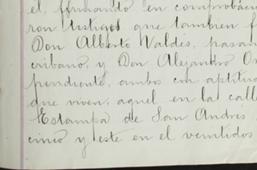 el, firmando en comprobació
ron testigos que tambien f
Don Alberto Valdés, pasan
cribano, y Don Alejandro O
pendiente, ambos con aptitu
que viven, aquel en la call
Estampa de San Andrés
cinco y este en el veintidos